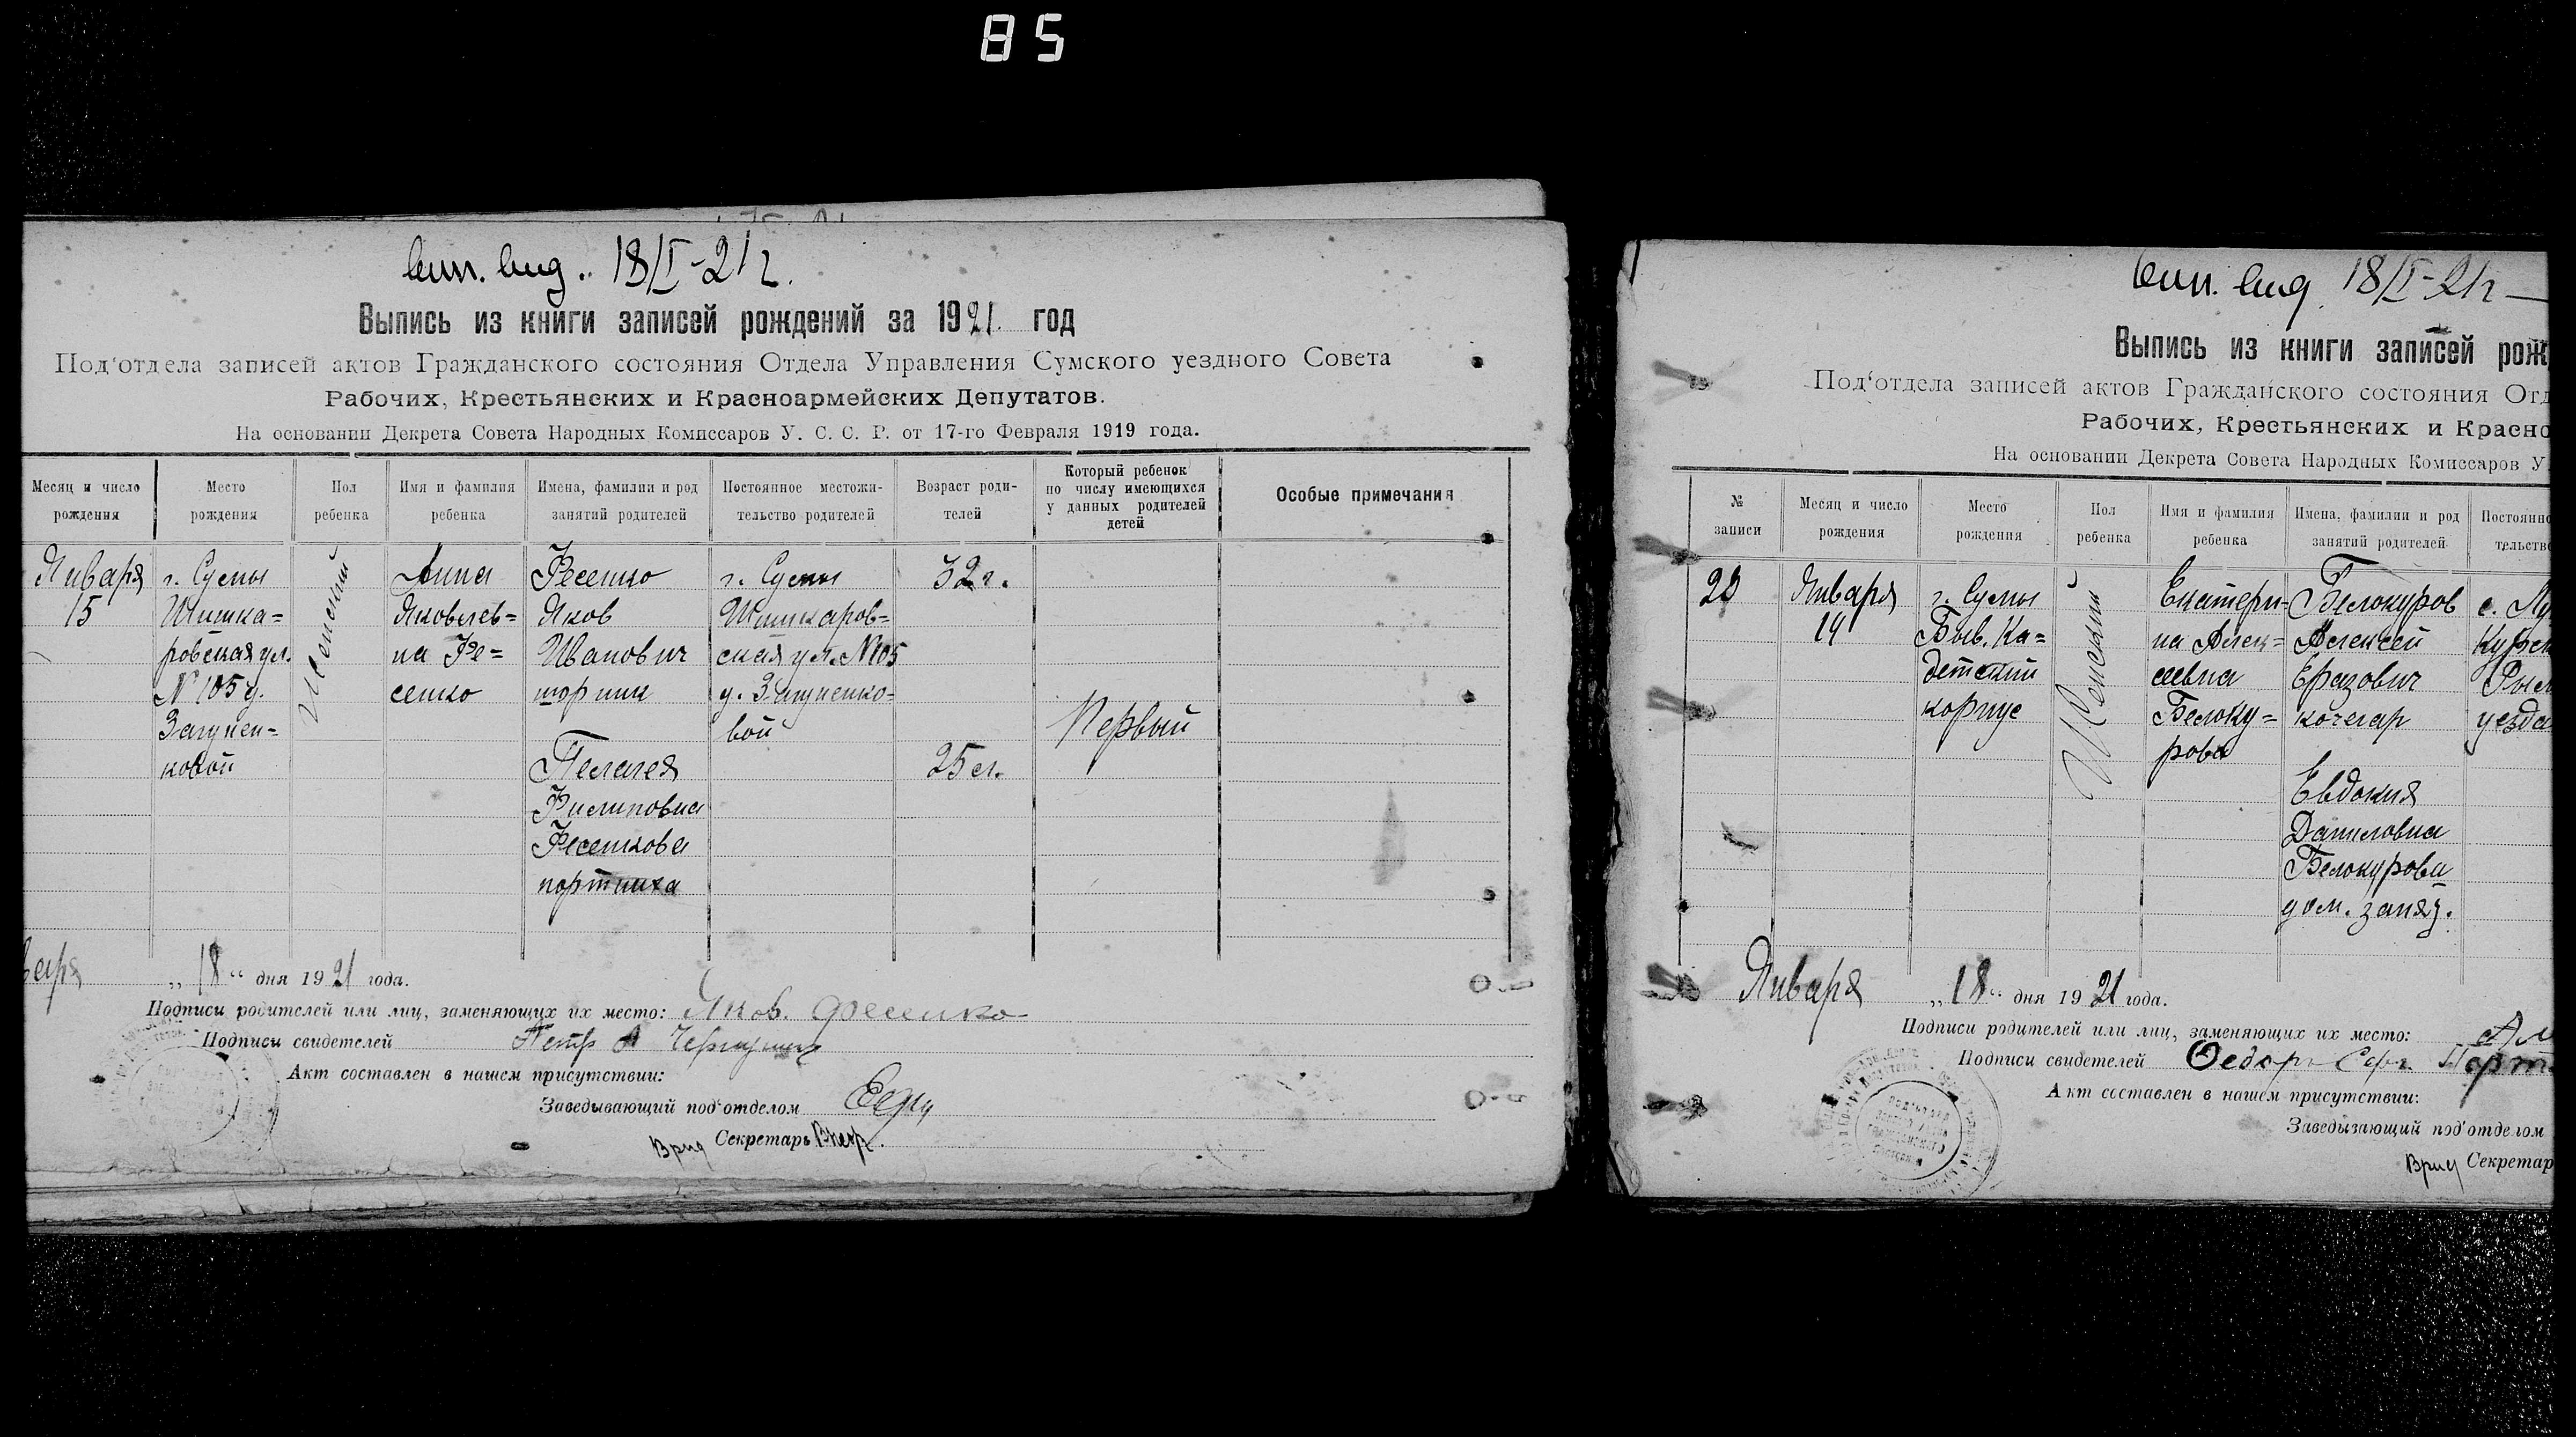 85
вып. выд. 18/I-21 г.
Выпись из книги записей рождений за 1921 год
Под‘отдела записей актов Гражданского состояния Отдела Управления Сумского уездного Совета
Рабочих, Крестьянских и Красноармейских Депутатов.
На основании Декрета Совета Народных Комиссаров У. С. С. Р. от 17-го Февраля 1919 года.
Месяц и число рождения
Место рождения
Пол ребенка
Имя и фамилия ребенка
Имена, фамилии и род занятий родителей
Постоянное местожи-
тельство родителей
Возраст роди-
телей
Который ребенок
по числу имеющихся
у данных родителей
детей
Особые примечания
Января
15
г. Сумы
Шишка=
ровская ул.
№ 105 д.
Женский
Анна
Яковлев=
на Фе=
сенко
Фесенко
Яков
Иванович
шорник
Пелагея
Филиповна
Фесенкова
портниха
г. Сумы
Шишкаров=
ская ул. №105
вой
32 г.
25 л.
Первый
„18“ дня 1921 года.
Подписи родителей или лиц, заменяющих их место: Яков. Фесенко
Подписи свидетелей Петр
Акт составлен в нашем присутствии:
Заведывающий под‘отделом
Врид Секретарь
вып. выд. 18/I-21г
Выпись из книги записей рож
Под‘отдела записей актов Гражданского состояния Отд
Рабочих, Крестьянских и Красно
На основании Декрета Совета Народных Комиссаров У
№ записи
Месяц и число рождения
Место рождения
Пол ребенка
Имя и фамилия ребенка
Имена, фамилии и род занятий родителей
Постоянно
тельство
Января
14
г. Сумы
Быв. Ка=
детский
корпус
Женский
Екатери-
на Алек=
сеевна
Белоку=
рова
Белокуров
Алексей
Еразович
кочегар
Евдокия
Даниловна
Белокурова
дом. заняд.
уезда
Января „18“ дня 1921 года.
Подписи родителей или лиц, заменяющих их место:
Подписи свидетелей Ѳедоръ
Акт составлен в нашем присутствии:
Заведывающий под‘отделом
Врид Секретар